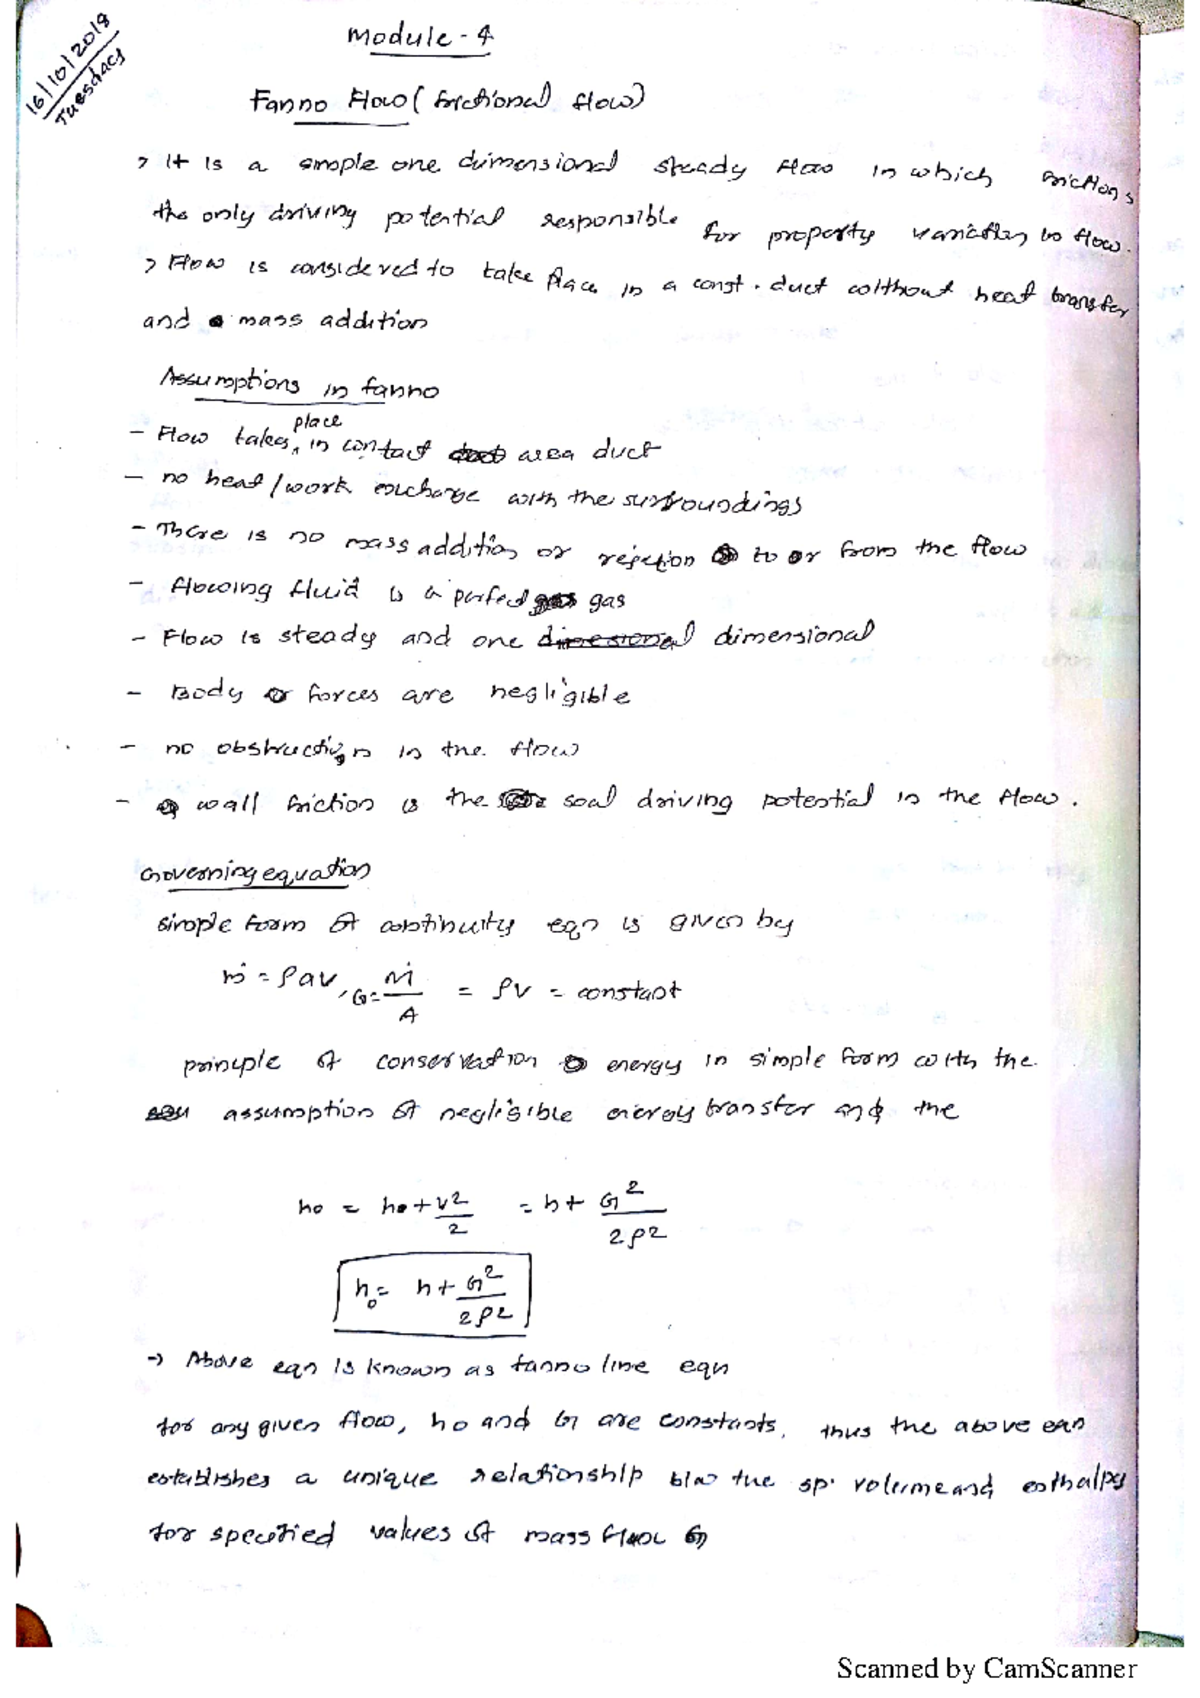 16/10/2018
Tuesday
Module - 4
Fanno Flow ( frictional flow)
> It is a simple one dimensional steady flow in which friction is
the only driving potential responsible for property variation in flow.
> Flow is considered to take place in a const. duct without heat transfer
and mass addition
Assumptions in fanno
- Flow takes place in contact area duct
- no heat/work exchange with the surroundings
- There is no mass addition or rejection to or from the flow
- flowing fluid is a perfect gas
- Flow is steady and one dimensional
- Body forces are negligible
- no obstruction in the flow
- wall friction is the soal driving potential in the flow.
Governing equation
simple form of continuity eqn is given by
ṁ = ρav, G = Ṁ/A = ρv = constant
principle of conservation energy in simple form with the
assumption of negligible energy transfer and the
ho = ho + v²/2 = h + G²/2ρ²
h₀ = h + G²/2ρ²
→ Above eqn is known as fanno line eqn
for any given flow, ho and G are constants, thus the above eqn
establishes a unique relationship b/w the sp. volume and enthalpy
for specified values of mass flux G
Scanned by CamScanner